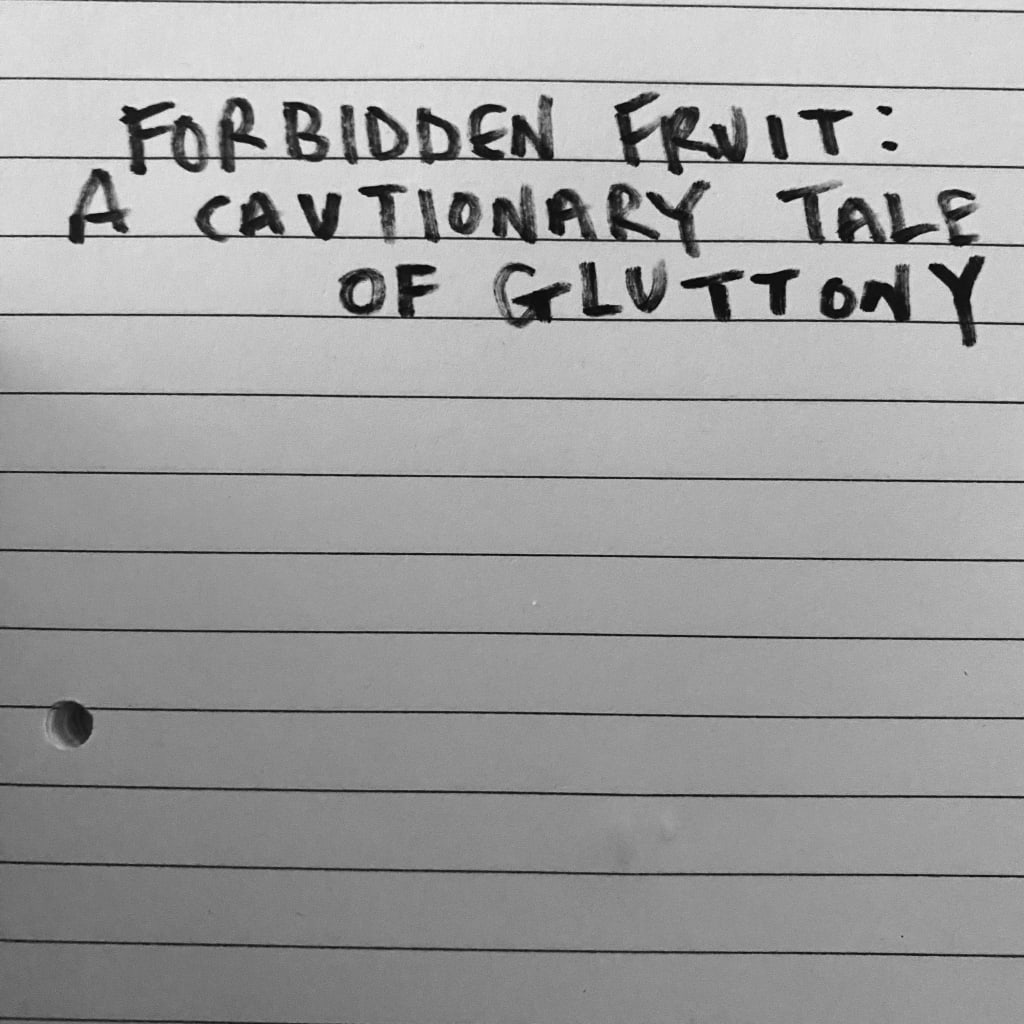 FORBIDDEN FRUIT:
A CAUTIONARY TALE
OF GLUTTONY